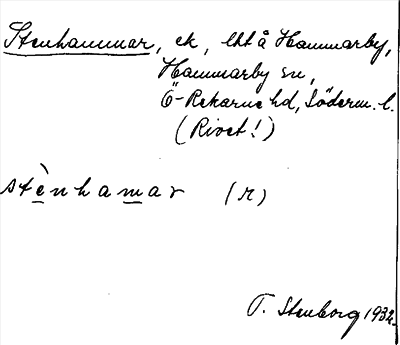 Stenhammar, ek, lht å Hammarby,
Hammarby sn,
Ö-Rekarne hd, Söderm. l.
(Rivet!)
stènhamar (r)
T. Stenborg 1932.